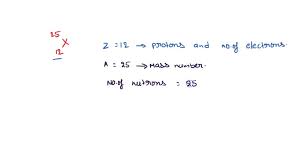 25
X
12
Z = 12 → protons and no of electrons.
A = 25 → Mass number.
No. of nutrons = 25